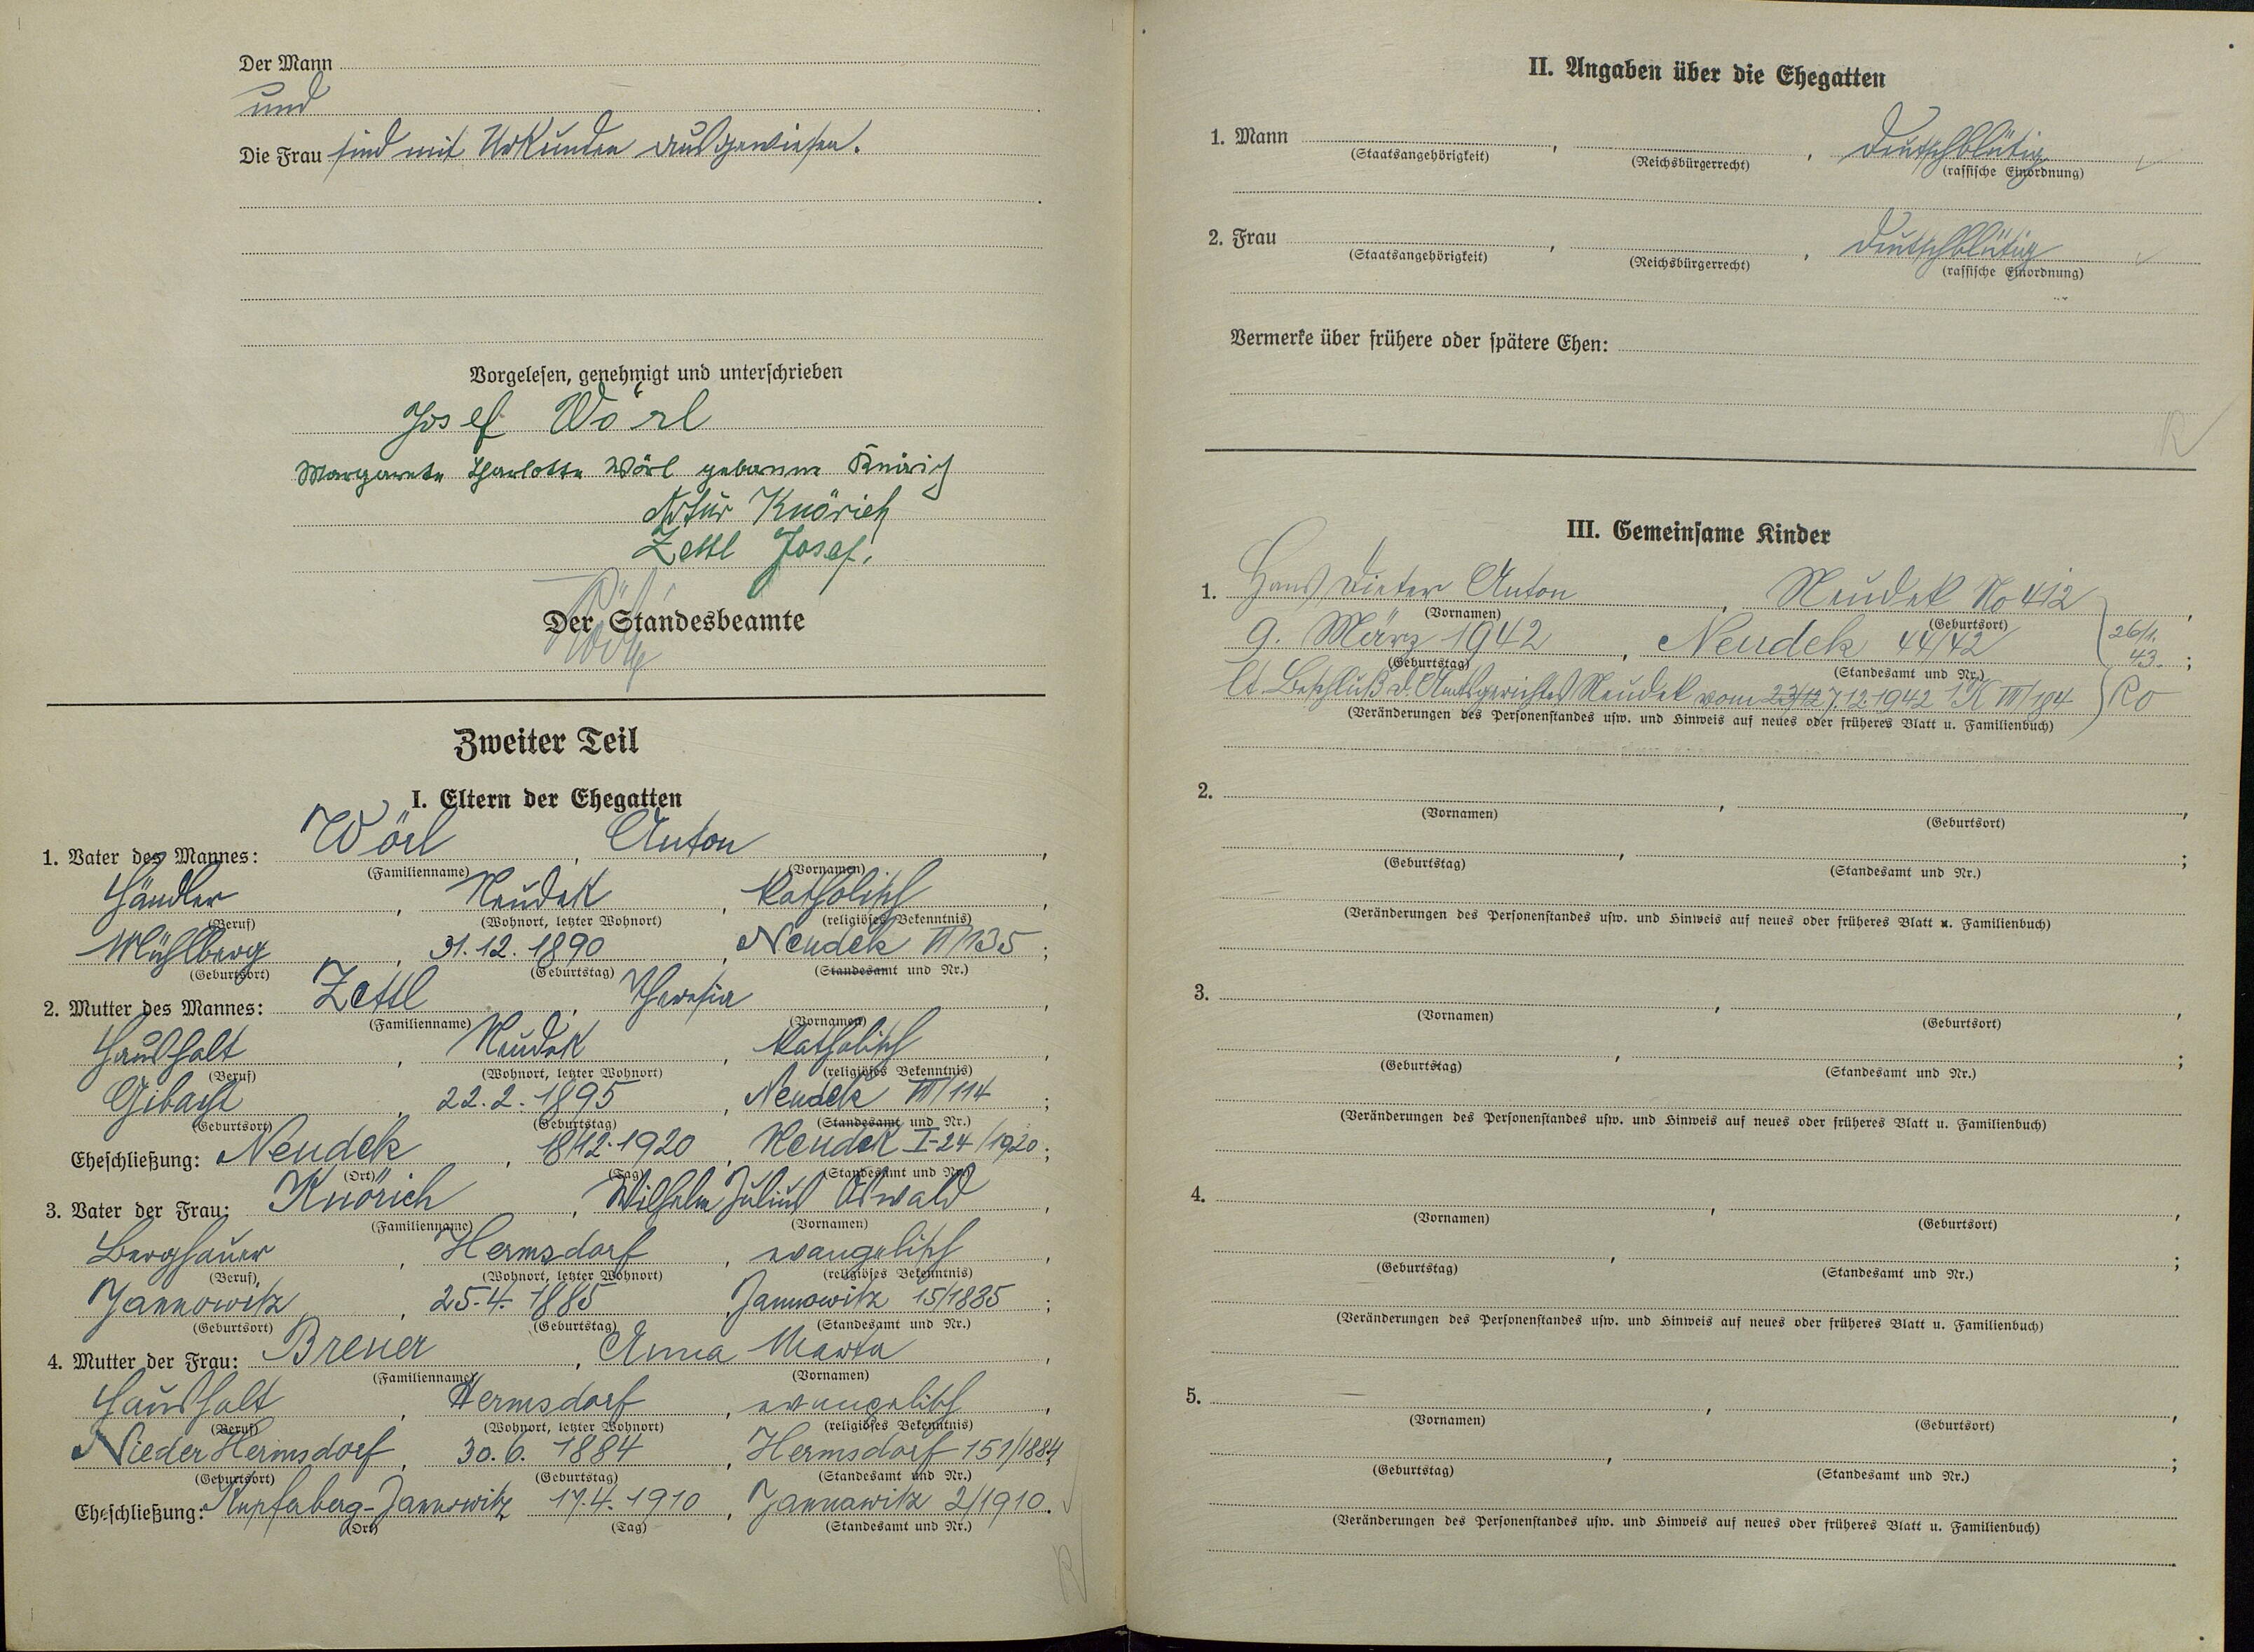 Der Mann
und
Die Frau sind mit Urkunden ausgewiesen.
Vorgelesen, genehmigt und unterschrieben
Josef Wörl
Margarete Charlotte Wörl geborene Knörich
Artur Knörich
Zettl Josef.
Der Standesbeamte
Zweiter Teil
I. Eltern der Ehegatten
1. Vater des Mannes: Wörl, Anton,
(Familienname) (Vornamen)
Händler, Neudek, katholisch,
(Beruf) (Wohnort, letzter Wohnort) (religiöses Bekenntnis)
Mühlberg, 31.12.1890, Neudek VI/135;
(Geburtsort) (Geburtstag) (Standesamt und Nr.)
2. Mutter des Mannes: Zettl, Theresia,
(Familienname) (Vornamen)
Haushalt, Neudek, katholisch,
(Beruf) (Wohnort, letzter Wohnort) (religiöses Bekenntnis)
Gibacht, 22.2.1895, Neudek VII/114;
(Geburtsort) (Geburtstag) (Standesamt und Nr.)
Eheschließung: Neudek, 18/12.1920, Neudek I-24/1920;
(Ort) (Tag) (Standesamt und Nr.)
3. Vater der Frau: Knörich, Wilhelm Julius Oswald,
(Familienname) (Vornamen)
Berghauer, Hermsdorf, evangelisch,
(Beruf) (Wohnort, letzter Wohnort) (religiöses Bekenntnis)
Jannowitz, 25.4.1885, Jannowitz 15/1885;
(Geburtsort) (Geburtstag) (Standesamt und Nr.)
4. Mutter der Frau: Brener, Anna Marta,
(Familienname) (Vornamen)
Haushalt, Hermsdorf, evangelisch,
(Beruf) (Wohnort, letzter Wohnort) (religiöses Bekenntnis)
Nieder Hermsdorf, 30.6.1884, Hermsdorf 151/1884
(Geburtsort) (Geburtstag) (Standesamt und Nr.)
Eheschließung: Kupferberg-Jannowitz 17.4.1910, Jannowitz 2/1910.
(Ort) (Tag) (Standesamt und Nr.)
R
II. Angaben über die Ehegatten
1. Mann , , deutschblütig
(Staatsangehörigkeit) (Reichsbürgerrecht) (rassische Einordnung)
2. Frau , , deutschblütig
(Staatsangehörigkeit) (Reichsbürgerrecht) (rassische Einordnung)
Vermerke über frühere oder spätere Ehen:
R
III. Gemeinsame Kinder
1. Hans Dieter Anton, Neudek No 412,
(Vornamen) (Geburtsort)
9. März 1942, Neudek 44/42 26/1. 43.;
(Geburtstag) (Standesamt und Nr.)
lt. Beschluß d. Amtsgerichtes Neudek vom 23/12 7.12.1942 1 X VIII/194 Ro
(Veränderungen des Personenstandes usw. und Hinweis auf neues oder früheres Blatt u. Familienbuch)
2. , ,
(Vornamen) (Geburtsort)
, ;
(Geburtstag) (Standesamt und Nr.)
(Veränderungen des Personenstandes usw. und Hinweis auf neues oder früheres Blatt u. Familienbuch)
3. , ,
(Vornamen) (Geburtsort)
, ;
(Geburtstag) (Standesamt und Nr.)
(Veränderungen des Personenstandes usw. und Hinweis auf neues oder früheres Blatt u. Familienbuch)
4. , ,
(Vornamen) (Geburtsort)
, ;
(Geburtstag) (Standesamt und Nr.)
(Veränderungen des Personenstandes usw. und Hinweis auf neues oder früheres Blatt u. Familienbuch)
5. , ,
(Vornamen) (Geburtsort)
, ;
(Geburtstag) (Standesamt und Nr.)
(Veränderungen des Personenstandes usw. und Hinweis auf neues oder früheres Blatt u. Familienbuch)